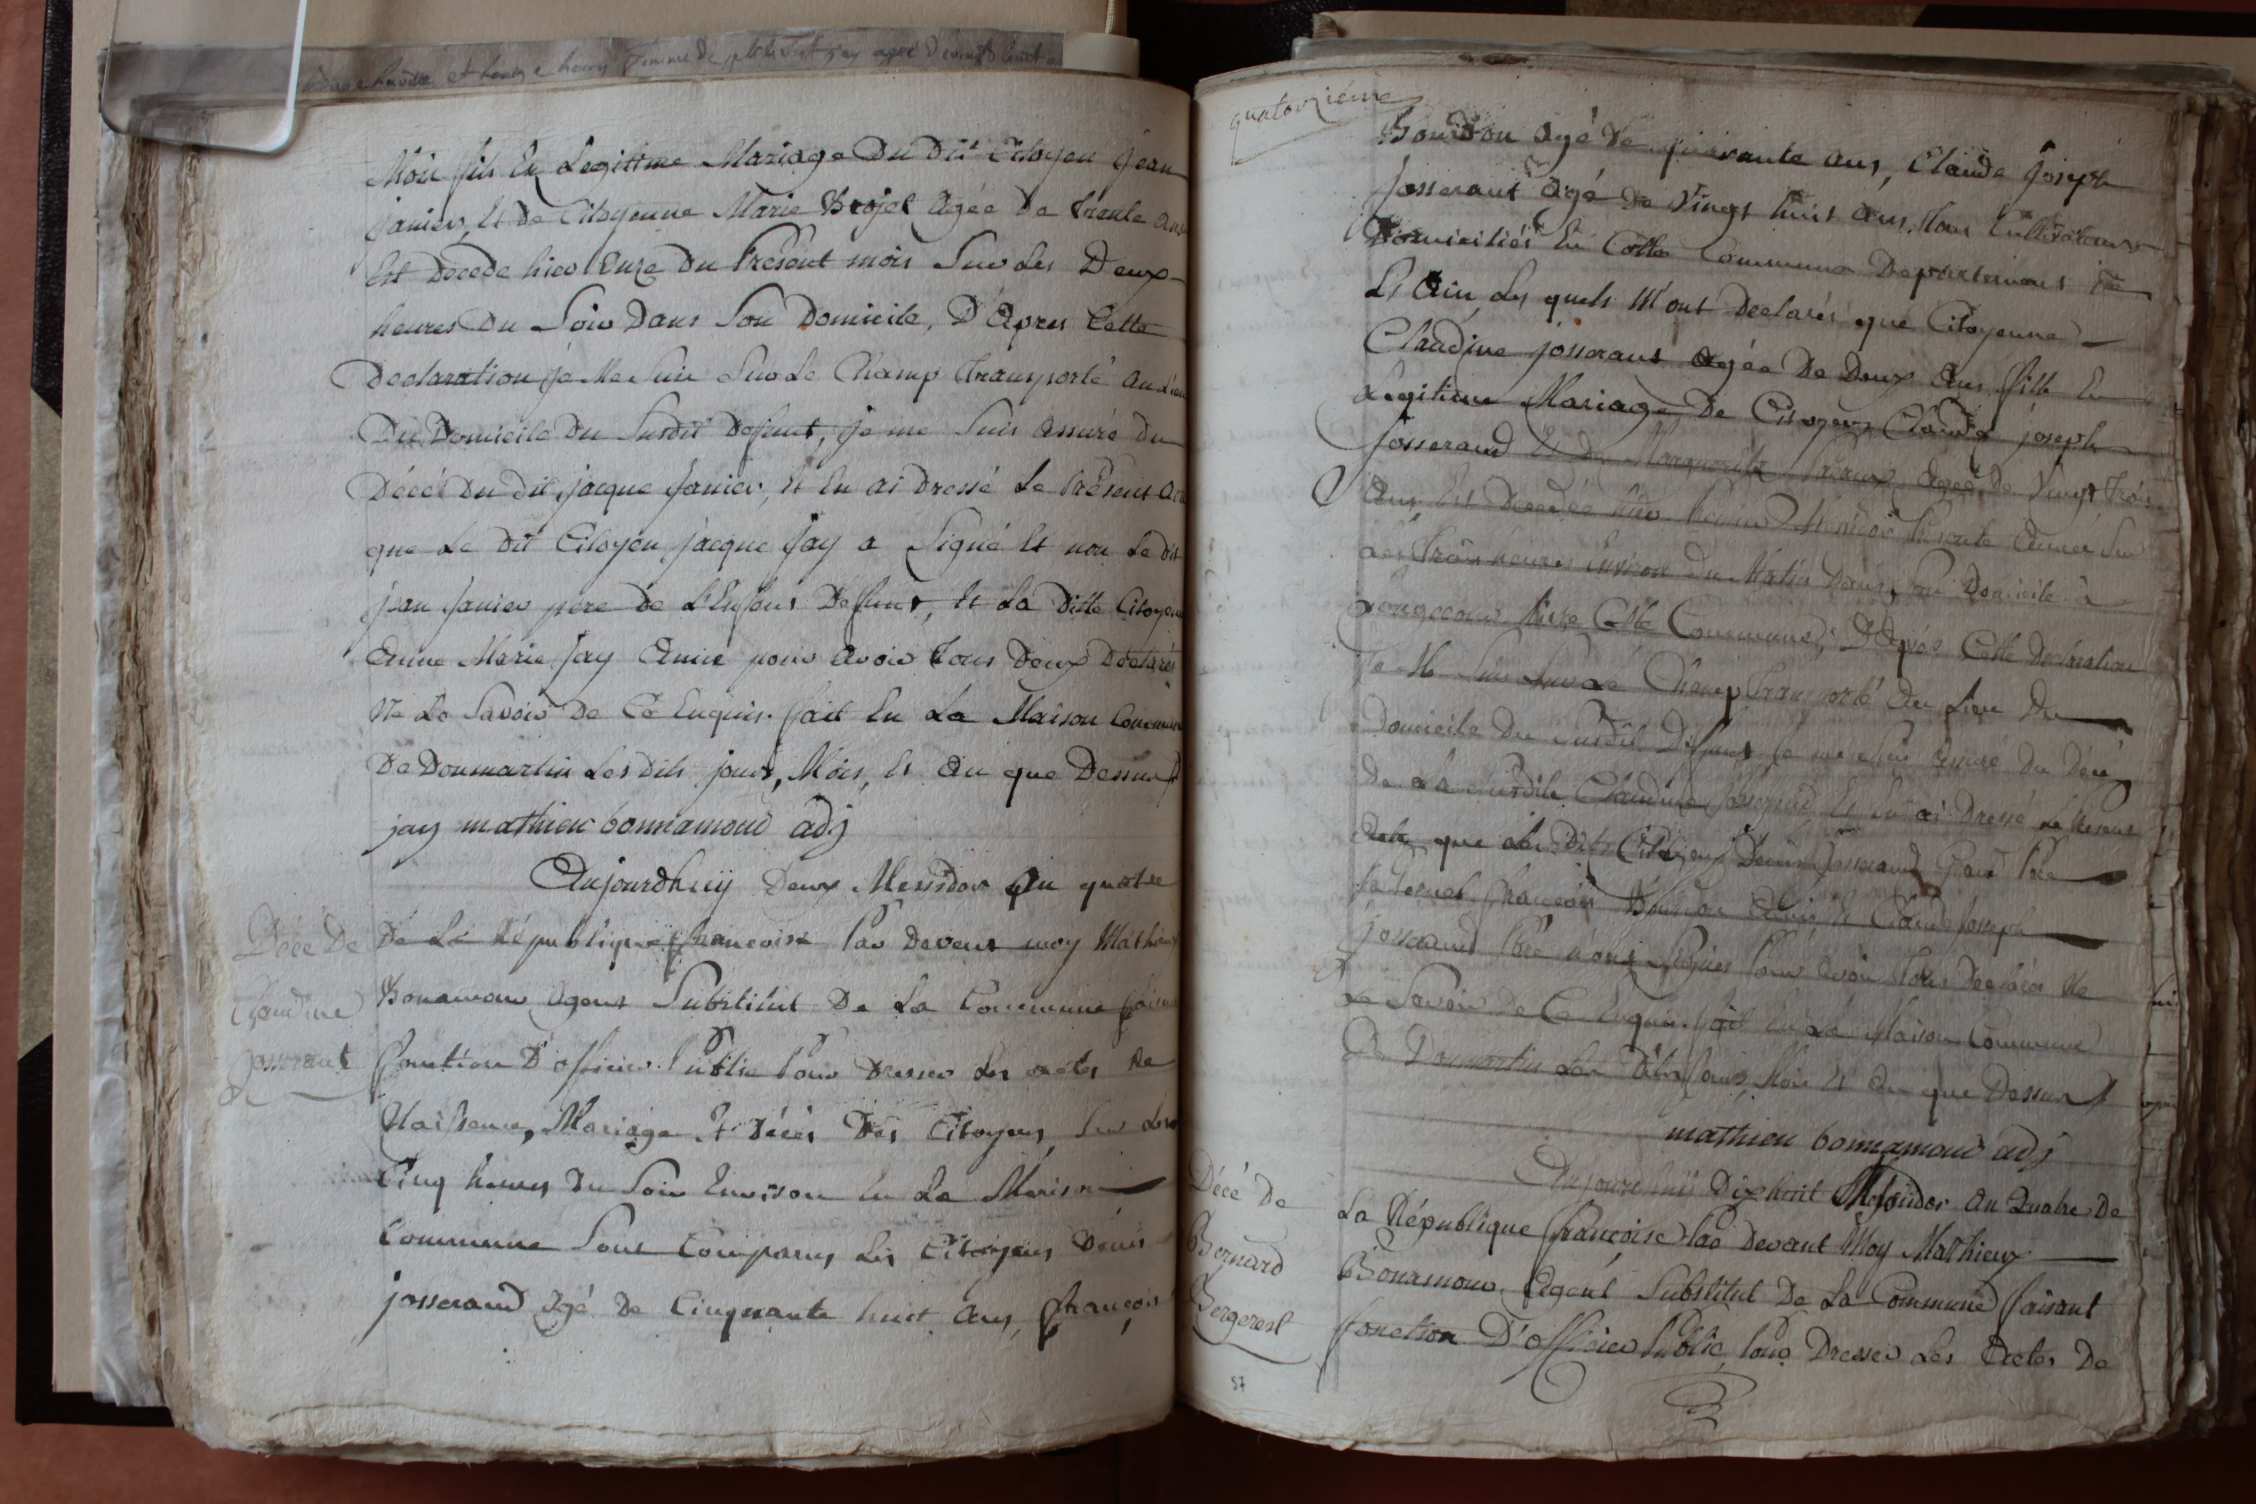 Mois fils En Legitime Mariage Du Dit Citoyen Jean
janier, Et De Citoyenne Marie Brojet Agée De trente Ans
Est Decede hier Onze Du Present mois Sur Les Deux
heures Du Soir Dans Son Domicile, D'Apres Cette
Declaration je Me Suis Sur Le Champ Transporté Au Lieu
Du Domicile Du Susdit Defunt, je me Suis Assuré du
Décés Du dit jacque Janier, Et En ai Dressé Le Présent Acte
que Le Dit Citoyen jacque Jay a Signé Et non Le dit
jean Janier pere De L'Enfant Defunt, Et La Ditte Citoyenne
Anne Marie Jay Amie pour Avoir Tous Deux Declarés
Ne Le Savoir De Ce Enquis. fait En La Maison Commune
De Donmartin Les Dits jours, Mois, Et An que Dessus
jay mathieu bonnamour adj
Décé De
Claudine
josserant
Aujourdhuÿ Deux Messidor An quatre
De La République francoise Par Devant moy Mathieux
Bonamour Agent Substitut De La Commune faisant
fonction D'officier Public Pour Dresser Les actes De
Naissance, Mariage Et Décés Des Citoyens, Sur Les
Cinq heures Du Soir Environ En La Maison
Commune Sont Comparus Les Citoyens Denis
josserand Agé De Cinquante huit Ans, francois
quatorzième
Bourdon Agé De quarante Ans, Claude Joseph
Josserant Agé De Vingt huit Ans, tous Cultivateurs
Domiciliés En Cette Commune Departement De
L'Ain, Les quels M'ont Declarés que Citoyenne
Claudine josserant Agée De Deux Ans fille En
Legitime Mariage De Citoyen Claude joseph
Josserand Et De Marguerite Agée De Vingt trois
Ans, Est Decedée
Les trois heures Environ Du Matin Dans Son Domicile à
Cette Commune, D'Après Cette Declaration
Je Me Suis Sur Le Champ Transporté Au Lieu Du
Domicile Du Susdit Defunt je me Suis Assuré Du Décés
De La Susdite Claudine Josserand Et En ai Dressé Le Present
Acte que Les Dits Citoyens Denis Josserand Grand Père
Paternel, francois Bourdon Amis Et Claude Joseph
josserand Père n'ont Signés Pour Avoir Tous Declarés Ne
Le Savoir De Ce Enquis. fait En La Maison Commune
De Donmartin Les Dits Jours, Mois Et An que Dessus
mathieu bonnamour adj
Décé De
Bernard
Bergerest
Aujourd'huÿ Dixhuit Messidor An Quatre De
La République francoise Par Devant Moy Mathieux
Bonamour Agent Substitut De La Commune faisant
fonction D'officier Public, Pour Dresser Les Actes De
57